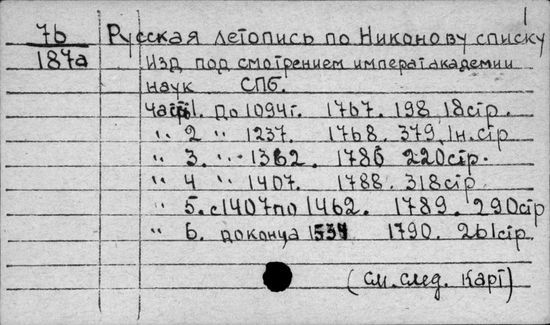 1
7b Русская летопись по Никонову списку
187а Изд под смотрением император академии
наук СПб.
Часть 1. до 1094г. 1767. 198, 18стр.
" 2 " 1237. 1768. 379, 1н.стр
" 3. " 1362. 1786 220стр.
" 4 " 1407. 1788. 318стр
" 5. с 1407 по 1462. 1789. 290стр
" 6. до конца 1534 1790. 261стр.
(см. след. карт)